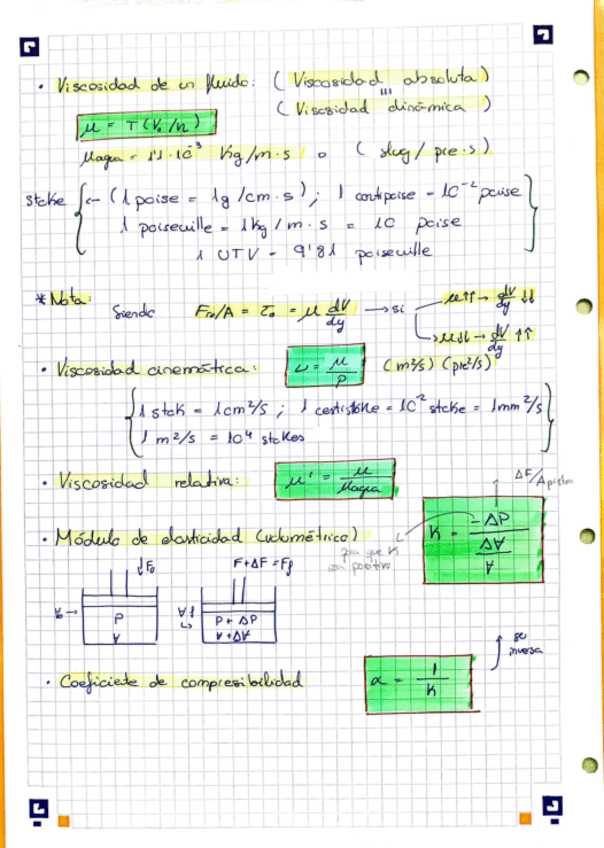 · Viscosidad de un fluido: ( Viscosidad absoluta )
III
( Viscosidad dinámica )
μ = T (V₀/n)
μagua = 1'1 · 10⁻³ Kg/m·s o ( slug / pie·s )
Stoke { ← ( 1 poise = 1g /cm·s ) ; 1 centipoise = 10⁻² poise
1 poiseuille = 1kg / m·s = 10 poise
1 UTV = 9'81 poiseuille }
* Nota:
Siendo F₍ᵣ₀₎/A = τ₀ = μ dV/dy → si
μ↑↑ → dV/dy ↓↓
→ μ↓↓ → dV/dy ↑↑
· Viscosidad cinemática: ν = μ/ρ (m²/s) (pie²/s)
{ 1 stok = 1cm²/s ; 1 centistoke = 10⁻² stoke = 1mm²/s
1 m²/s = 10⁴ stokes }
· Viscosidad relativa: μ' = μ/μagua
ΔF/A piston
· Módulo de elasticidad (volumétrico)
K = -ΔP / (ΔV/V)
para que K
sea positivo
↓F₀
F+ΔF = Ff
V₀ →
P
V
P + ΔP
V + ΔV
su
inversa
· Coeficiete de compresibilidad
α = 1/K